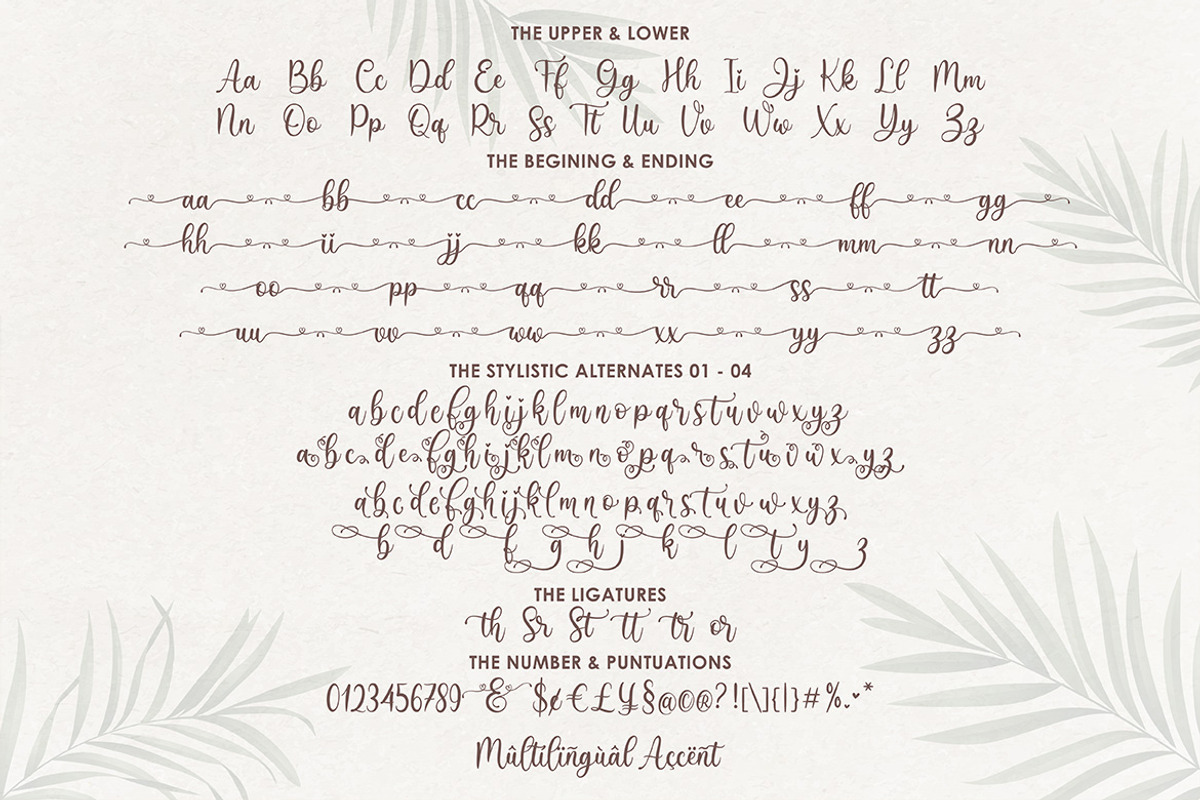 THE UPPER & LOWER
Aa Bb Cc Dd Ee Ff Gg Hh Ii Jj Kk Ll Mm
Nn Oo Pp Qq Rr Ss Tt Uu Vv Ww Xx Yy Zz
THE BEGINING & ENDING
aa bb cc dd ee ff gg
hh ii jj kk ll mm nn
oo pp qq rr ss tt
uu vv ww xx yy zz
THE STYLISTIC ALTERNATES 01 - 04
a b c d e f g h i j k l m n o p q r s t u v w x y z
a b c d e f g h i j k l m n o p q r s t u v w x y z
a b c d e f g h i j k l m n o p q r s t u v w x y z
b d f g h j k l t y z
THE LIGATURES
th Sr St tt tr or
THE NUMBER & PUNTUATIONS
0123456789 & $¢€£¥§@©®?![\]{|}#%.,*
Mûltílïñgùâl Aççëñt